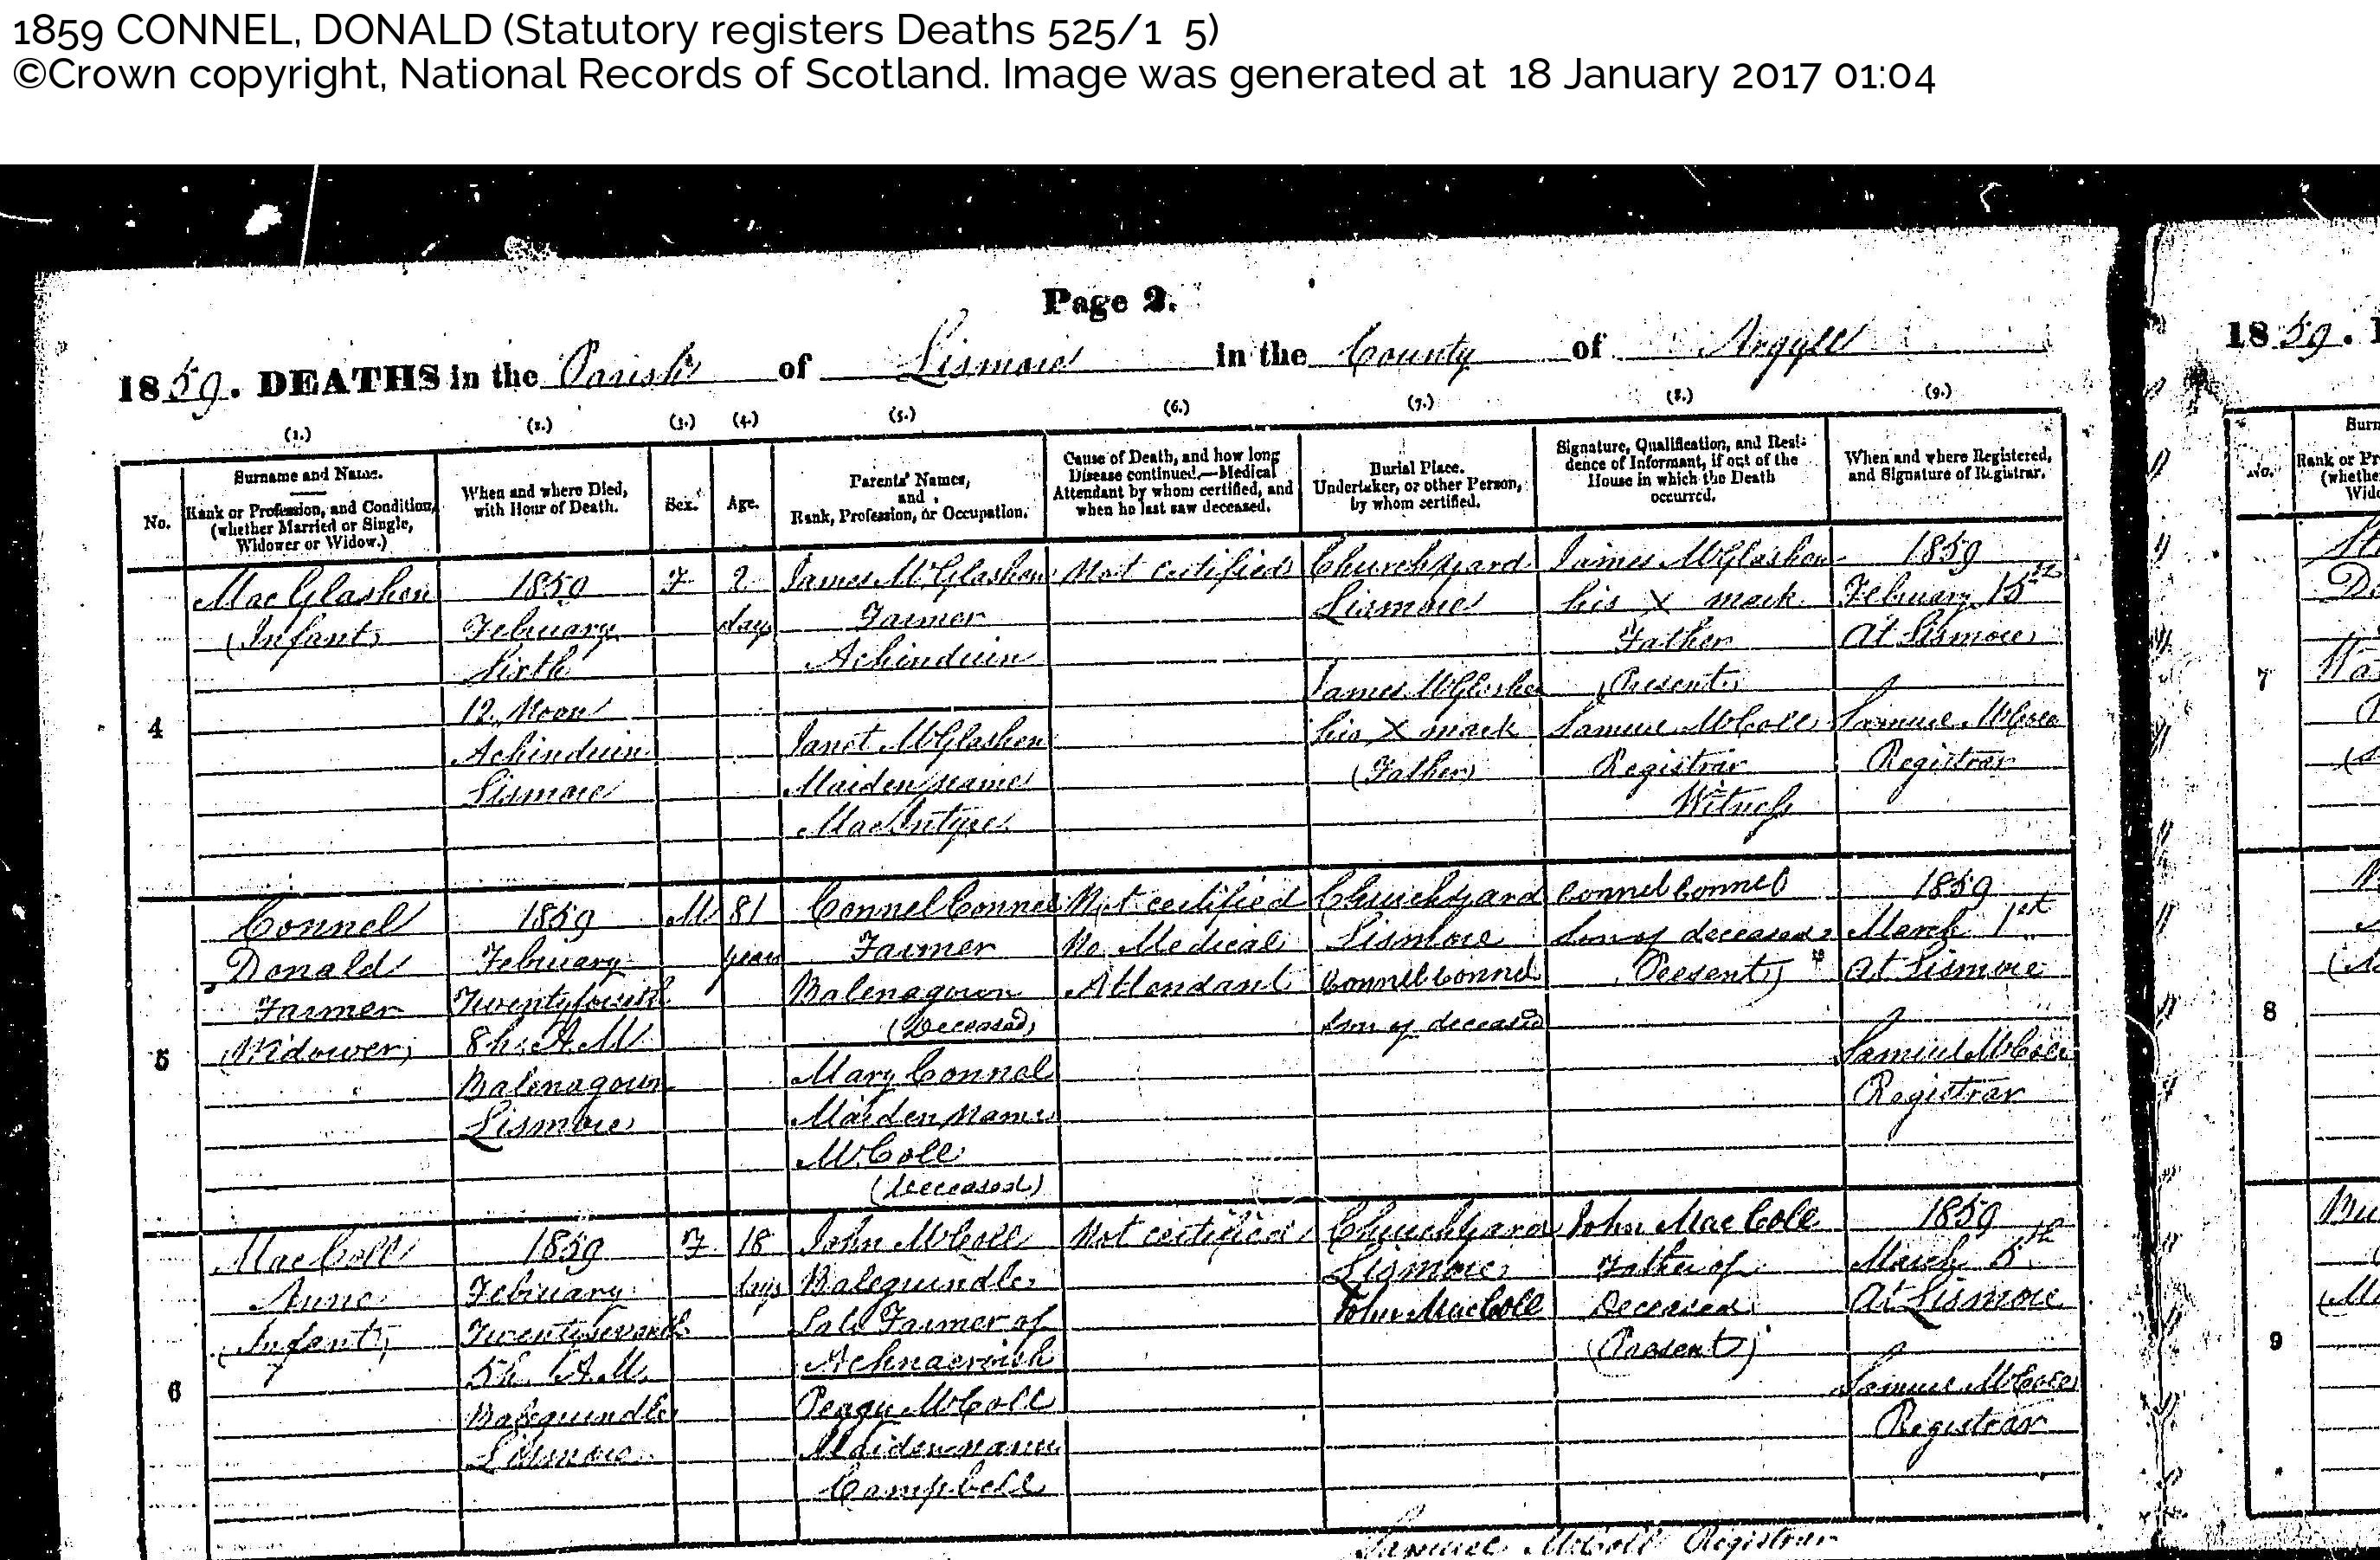 1859 CONNEL, DONALD (Statutory registers Deaths 525/1 5)
©Crown copyright, National Records of Scotland. Image was generated at 18 January 2017 01:04
Page 2.
1859. DEATHS in the Parish of Lismore in the County of Argyll
(1.) (2.) (3.) (4.) (5.) (6.) (7.) (8.) (9.)
No.
Surname and Name.
Rank or Profession, and Condition,
(whether Married or Single,
Widower or Widow.)
When and where Died,
with Hour of Death.
Sex.
Age.
Parents' Names,
and
Rank, Profession, or Occupation.
Cause of Death, and how long
Disease continued.—Medical
Attendant by whom certified, and
when he last saw deceased.
Burial Place.
Undertaker, or other Person,
by whom certified.
Signature, Qualification, and Resi-
dence of Informant, if out of the
House in which the Death
occurred.
When and where Registered,
and Signature of Registrar.
4
MacGlashen
(Infant)
1859
February
Sixth
12 Noon
Achinduin
Lismore
F
2
days
James McGlashen
Farmer
Achinduin
Janet McGlashen
Maiden name
MacIntyre
Not certified
Churchyard
Lismore
James McGlashen
his X mark
(Father)
James McGlashen
his X mark
Father
(Present)
Samuel McColl
Registrar
Witness
1859
February 15th
At Lismore
Samuel McColl
Registrar
5
Connel
Donald
Farmer
(Widower)
1859
February
Twentyfourth
8h. A.M
Balenagoun
Lismore
M
81
years
Connel Connel
Farmer
Balenagoun
(Deceased)
Mary Connel
Maiden Name
McColl
(Deceased)
Not certified
No Medical
Attendant
Churchyard
Lismore
Connel Connel
Son of deceased
Connel Connel
Son of deceased
(Present)
1859
March 1st
At Lismore
Samuel McColl
Registrar
6
MacColl
Anne
(Infant)
1859
February
Twentyseventh
5h. A.M.
Balegrundle
Lismore
F
18
days
John McColl
Balegrundle
Late Farmer of
Achnacroish
Peggy McColl
Maiden name
Campbell
Not certified
Churchyard
Lismore
John MacColl
John MacColl
Father of
Deceased
(Present)
1859
March 5th
At Lismore
Samuel McColl
Registrar
Samuel McColl Registrar
1859.
No.
7
8
9